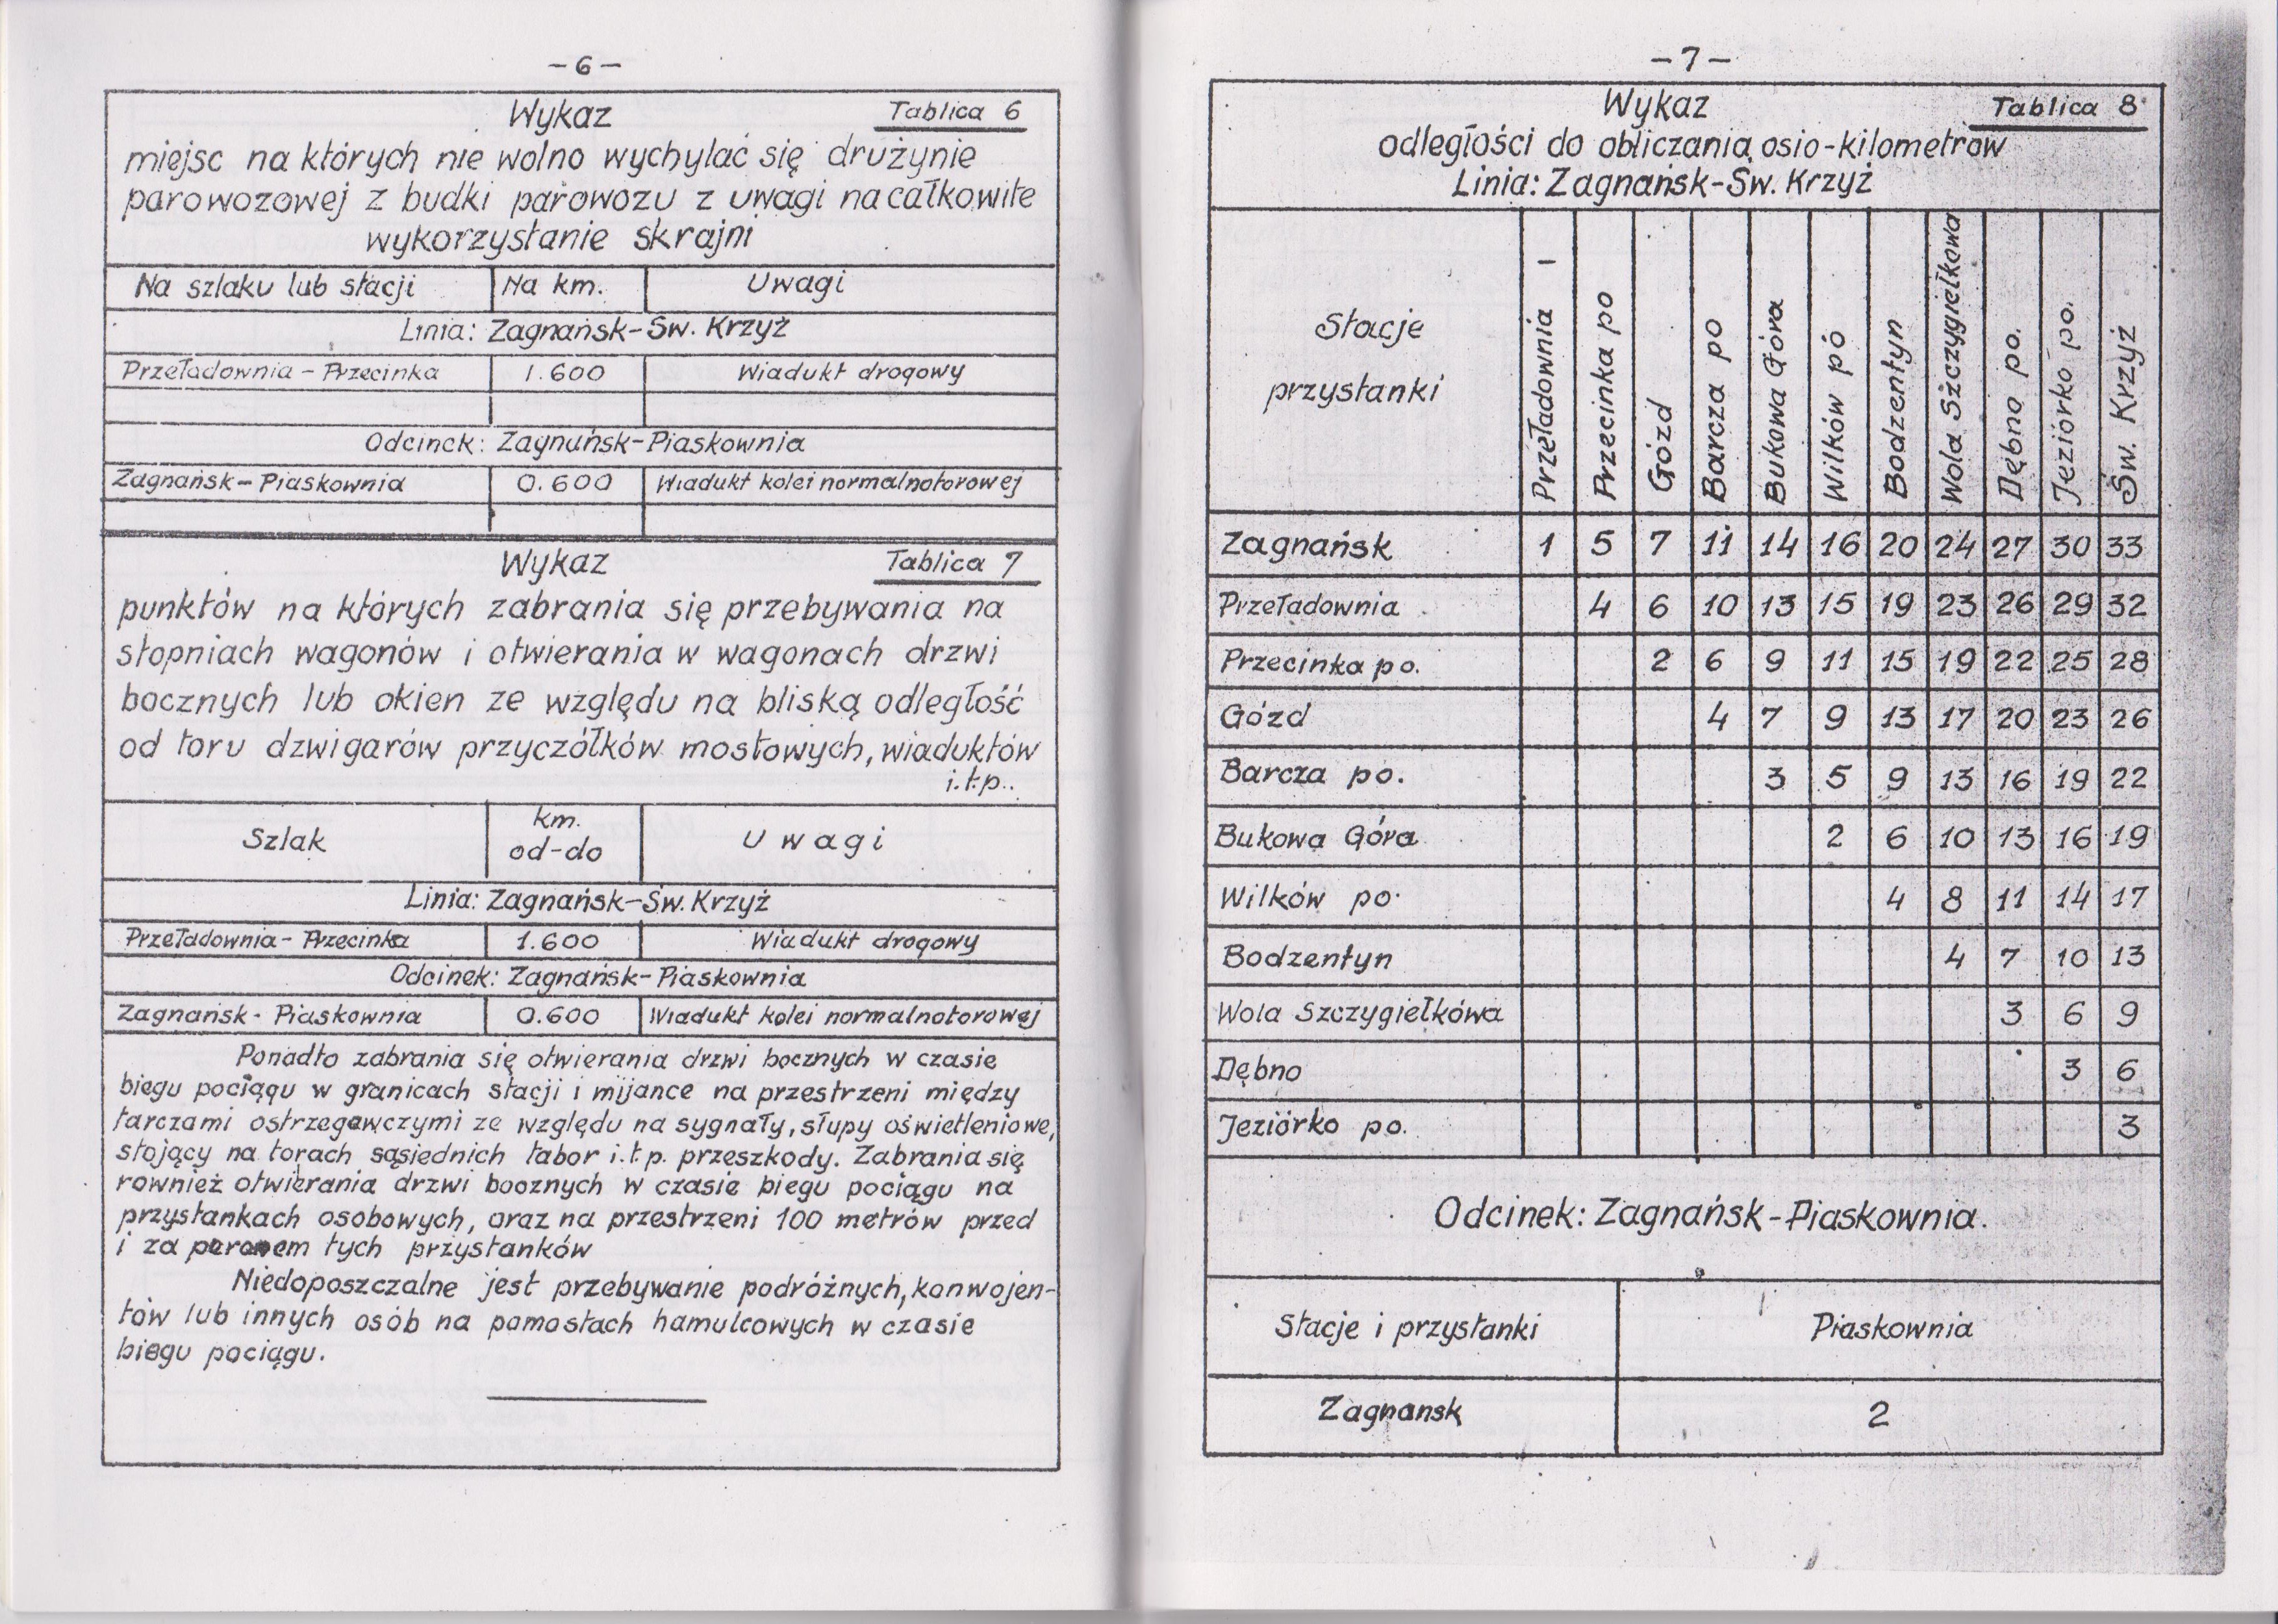 - 6 -
Wykaz
Tablica 6
miejsc na których nie wolno wychylać się drużynie
parowozowej z budki parowozu z uwagi na całkowite
wykorzystanie skrajni
Na szlaku lub stacji Na km. Uwagi
Linia: Zagnańsk-Św. Krzyż
Przeładownia - Przecinka 1.600 Wiadukt drogowy
Odcinek: Zagnańsk-Piaskownia
Zagnańsk - Piaskownia 0.600 Wiadukt kolei normalnotorowej
Wykaz
Tablica 7
punktów na których zabrania się przebywania na
stopniach wagonów i otwierania w wagonach drzwi
bocznych lub okien ze względu na bliską odległość
od toru dzwigarów przyczółków mostowych, wiaduktów
i.t.p..
Szlak km. od-do Uwagi
Linia: Zagnańsk-Św. Krzyż
Przeładownia - Przecinka 1.600 Wiadukt drogowy
Odcinek: Zagnańsk-Piaskownia
Zagnańsk - Piaskownia 0.600 Wiadukt kolei normalnotorowej
Ponadto zabrania się otwierania drzwi bocznych w czasie
biegu pociągu w granicach stacji i mijance na przestrzeni między
tarczami ostrzegawczymi ze względu na sygnały, słupy oświetleniowe,
stojący na torach sąsiednich tabor i.t.p. przeszkody. Zabrania się
rownież otwierania drzwi bocznych w czasie biegu pociągu na
przystankach osobowych, oraz na przestrzeni 100 metrów przed
i za peronem tych przystanków
Niedoposzczalne jest przebywanie podróżnych, konwojen-
tów lub innych osób na pomostach hamulcowych w czasie
biegu pociągu.
- 7 -
Wykaz
Tablica 8
odległości do obliczania osio-kilometrów
Linia: Zagnańsk-Św. Krzyż
Stacje przystanki Przeładownia Przecinka po Gózd Barcza po Bukowa Góra Wilków po Bodzentyn Wola Szczygiełkowa Dębno po. Jeziórko po. Św. Krzyż
Zagnańsk 1 5 7 11 14 16 20 24 27 30 33
Przeładownia 4 6 10 13 15 19 23 26 29 32
Przecinka po. 2 6 9 11 15 19 22 25 28
Gózd 4 7 9 13 17 20 23 26
Barcza po. 3 5 9 13 16 19 22
Bukowa Góra 2 6 10 13 16 19
Wilków po. 4 8 11 14 17
Bodzentyn 4 7 10 13
Wola Szczygiełkówa 3 6 9
Dębno 3 6
Jeziórko po. 3
Odcinek: Zagnańsk-Piaskownia.
Stacje i przystanki Piaskownia
Zagnansk 2